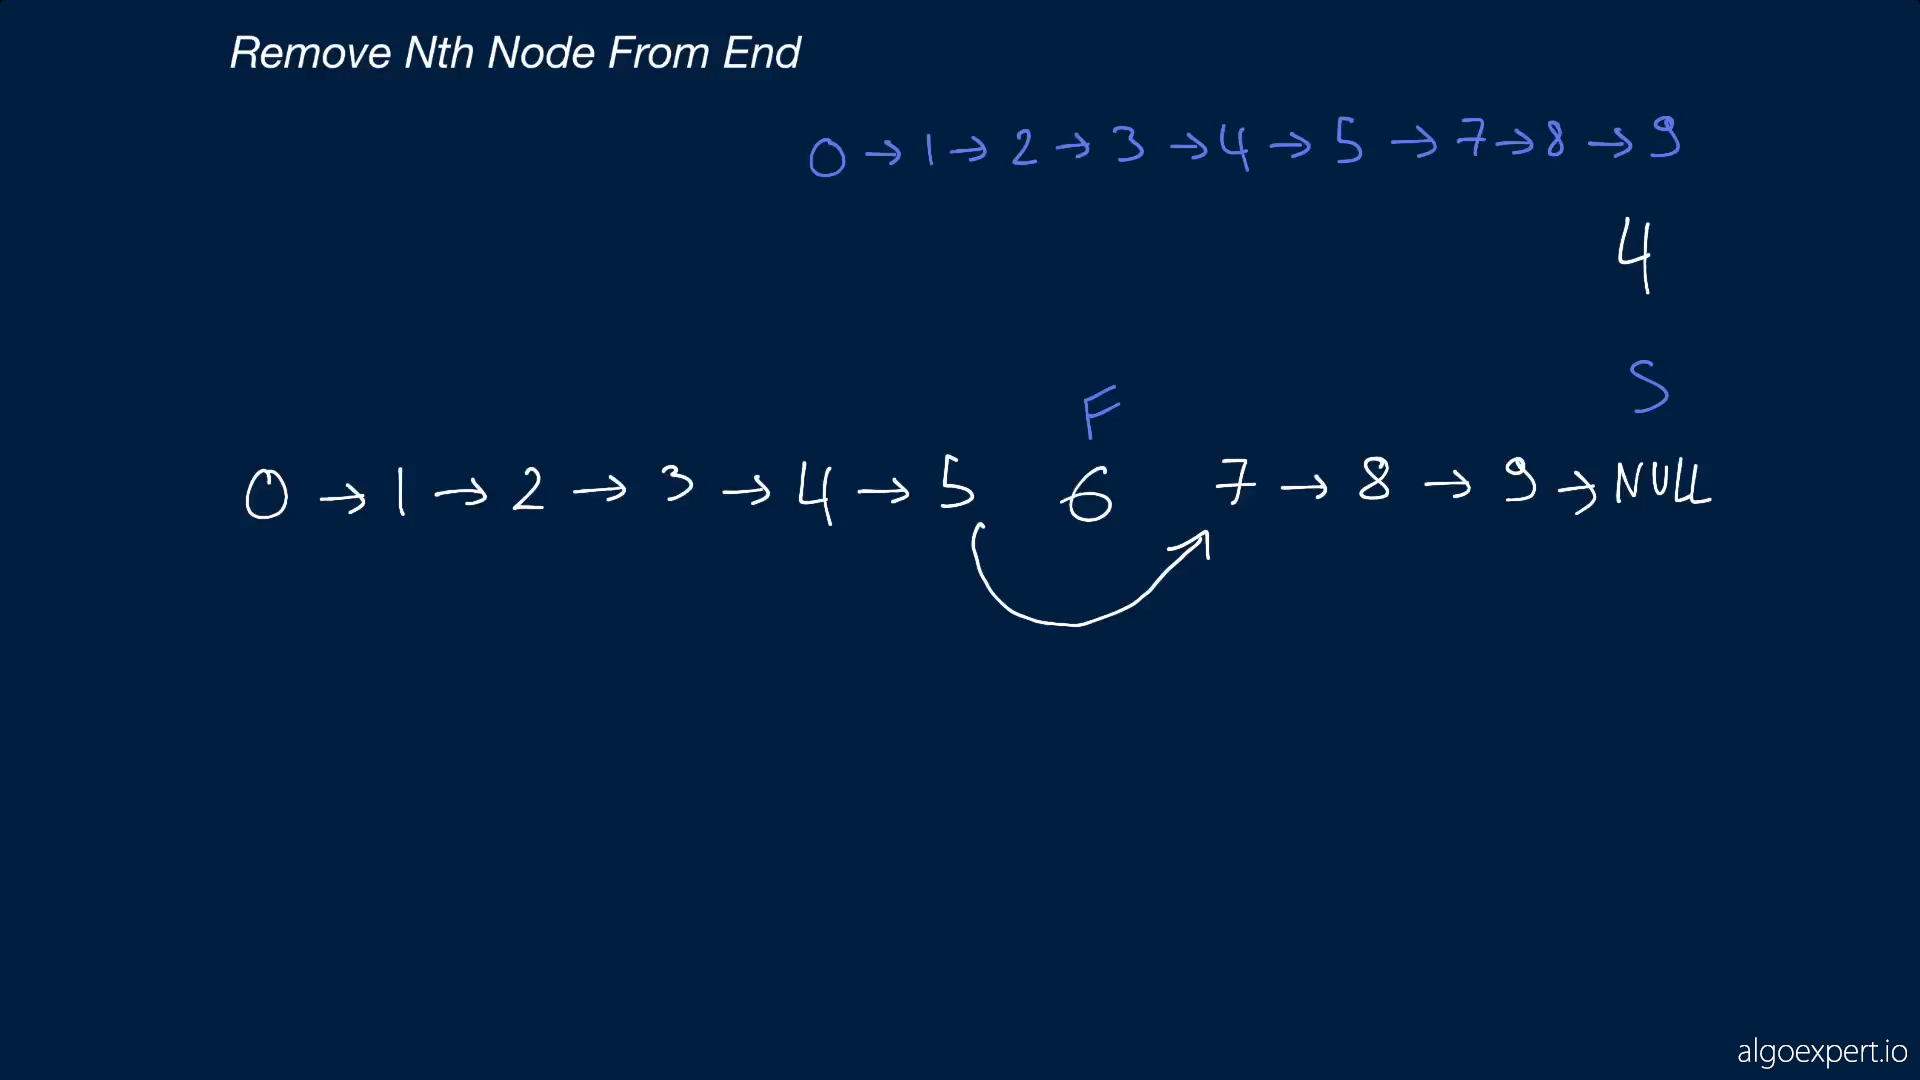 Remove Nth Node From End
0 → 1 → 2 → 3 → 4 → 5 → 7 → 8 → 9
4
F S
0 → 1 → 2 → 3 → 4 → 5 6 7 → 8 → 9 → NULL
algoexpert.io